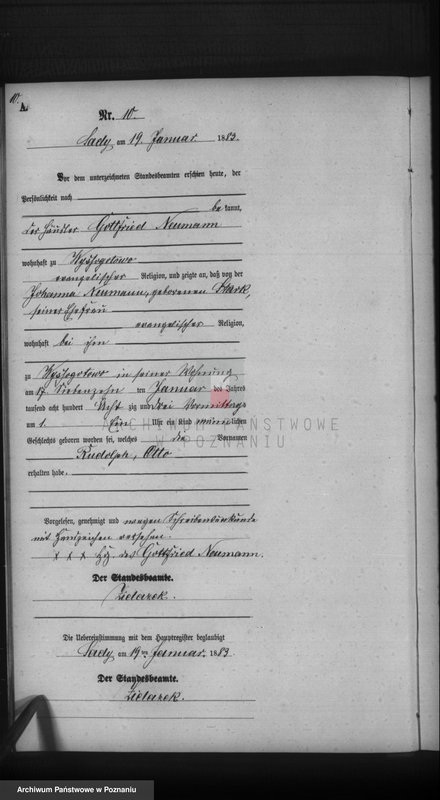 10.
A.
Nr. 10.
Sady, am 19. Januar 1883.
Vor dem unterzeichneten Standesbeamten erschien heute, der
Persönlichkeit nach
be kannt,
der Häusler Gottfried Neumann
wohnhaft zu Wyssogotowo
evangelischer Religion, und zeigte an, daß von der
Johanna Neumann, geborenen Stark,
seiner Ehefrau
evangelischer Religion,
wohnhaft bei ihm
zu Wyssogotowo in seiner Wohnung
am 17. Siebenzehn ten Januar des Jahres
tausend acht hundert Acht zig und drei Vormittags
um 1. Ein Uhr ein Kind männlichen
Geschlechts geboren worden sei, welches die Vornamen
Rudolph, Otto
erhalten habe.
ARCHIWUM PAŃSTWOWE
W POZNANIU
Vorgelesen, genehmigt und wegen Schreibensunkunde
mit Handzeichen versehen.
x x x Hz. des Gottfried Neumann.
Der Standesbeamte.
Zielazek.
Die Uebereinstimmung mit dem Hauptregister beglaubigt
Sady, am 19ten Januar 1883.
Der Standesbeamte.
Zielazek.
Archiwum Państwowe w Poznaniu